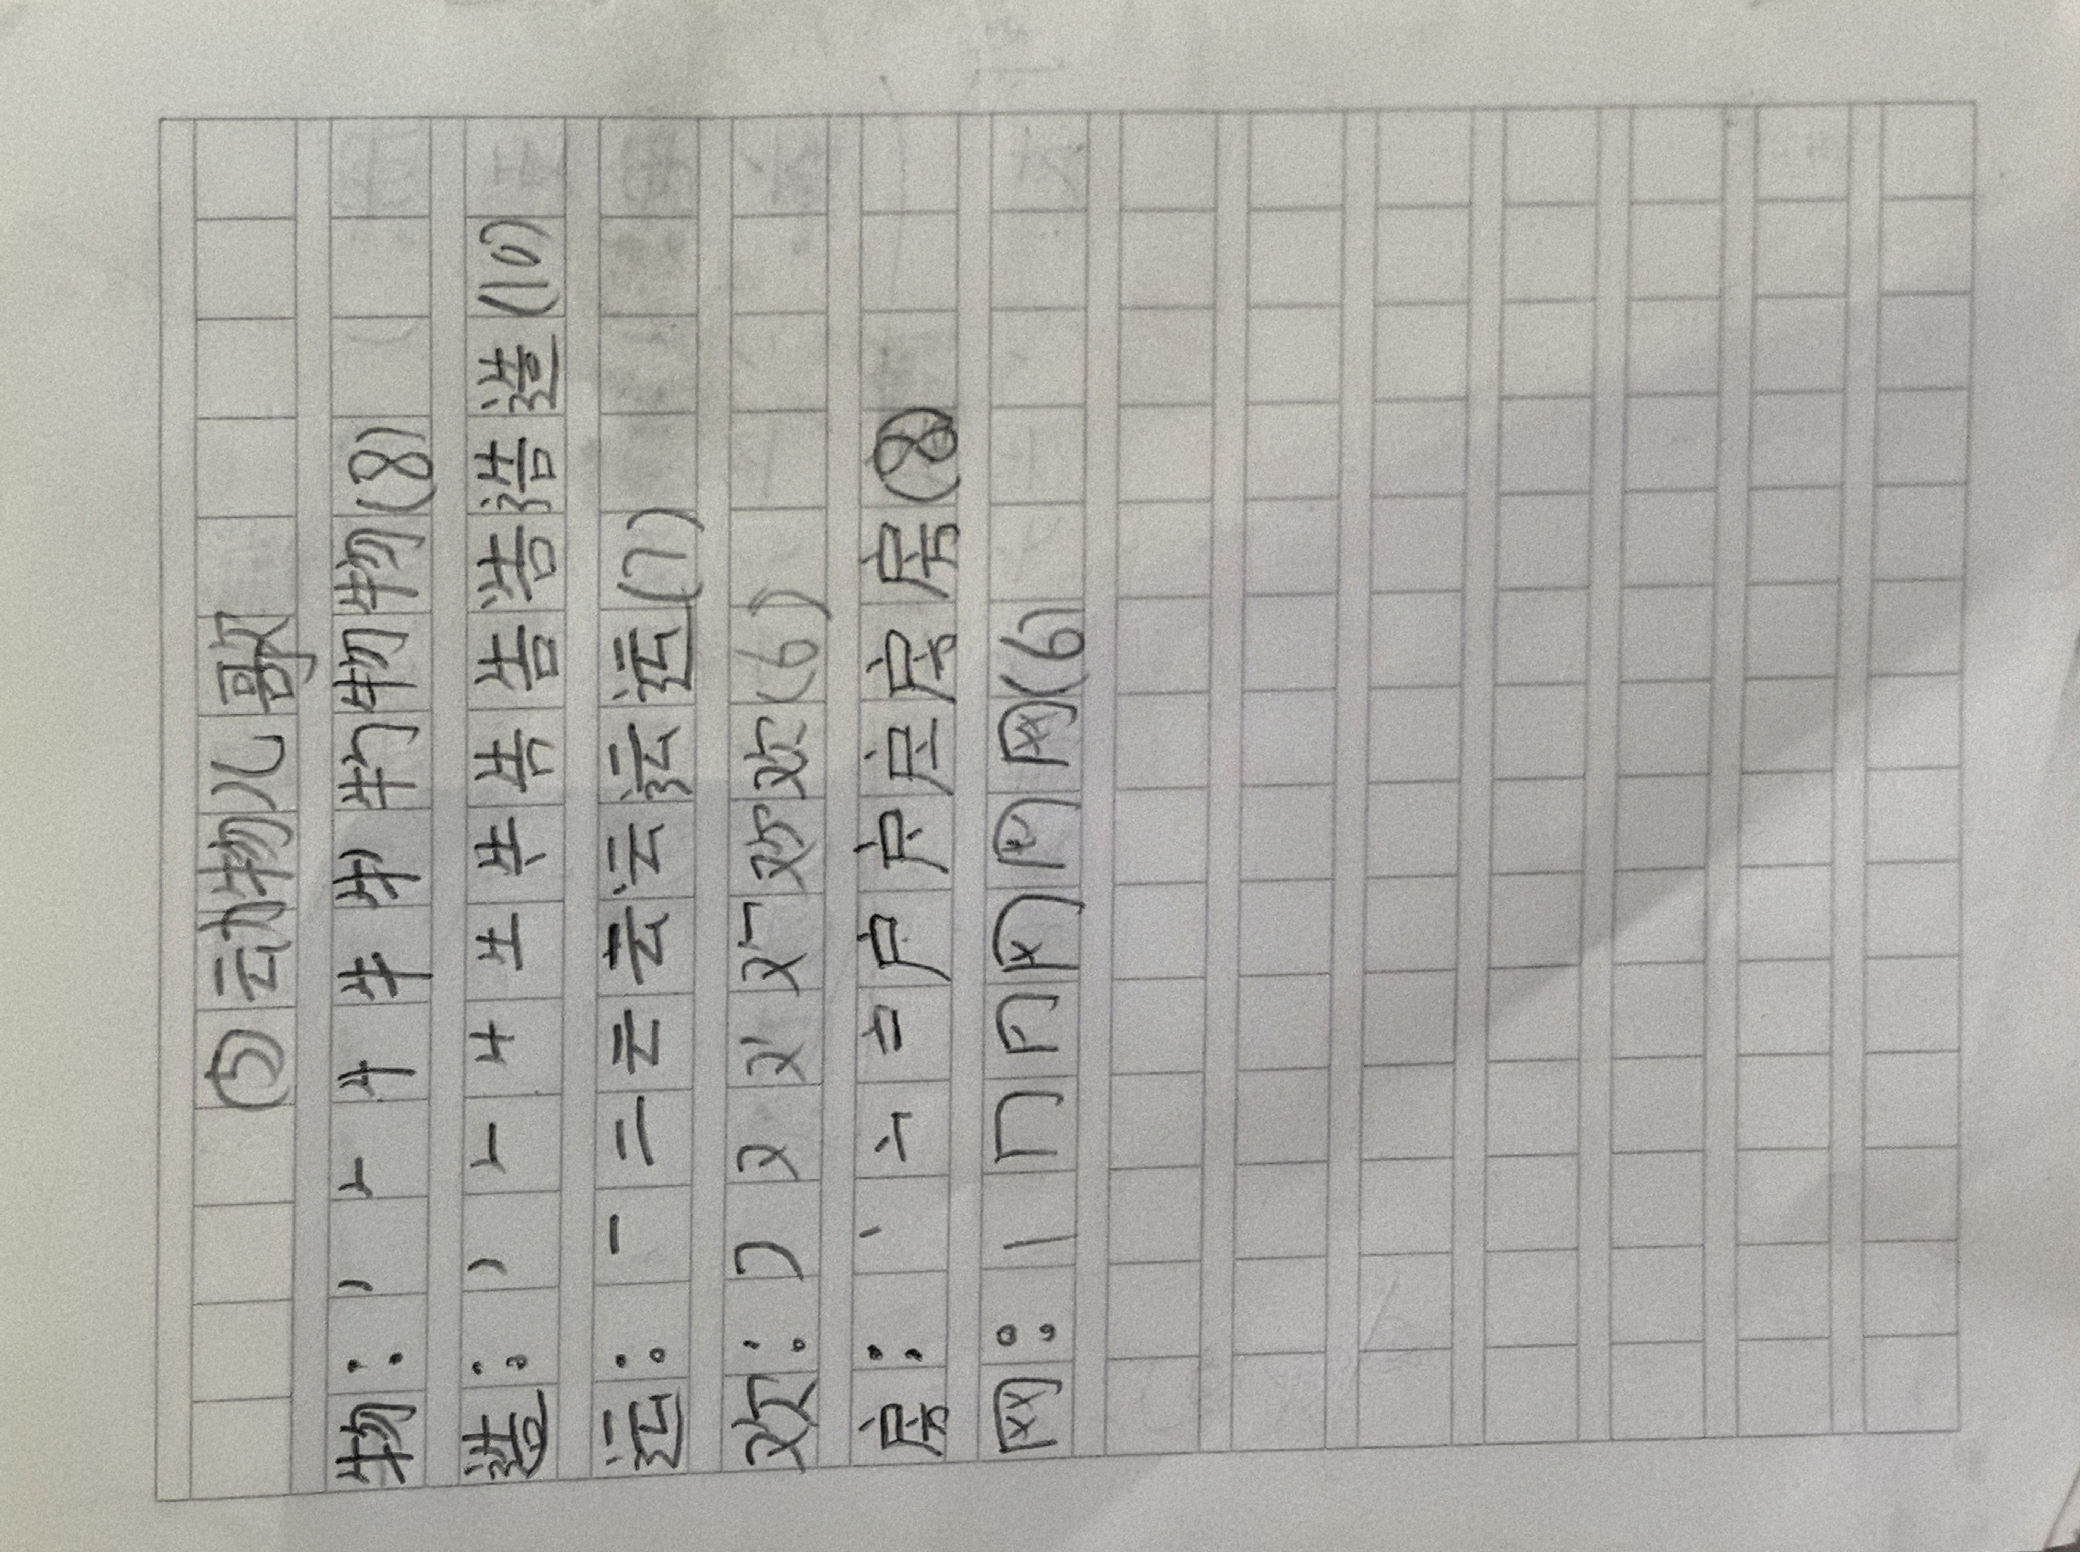 ⑤动物儿歌
物:丿𠂉牛牛牜牞物物(8)
造:丿𠂉牛生告告告浩浩造(10)
运:一二云云云运运(7)
欢:フ又欢欢(6)
房:丶户户房房房(8)
网:丨冂冂网网网(6)